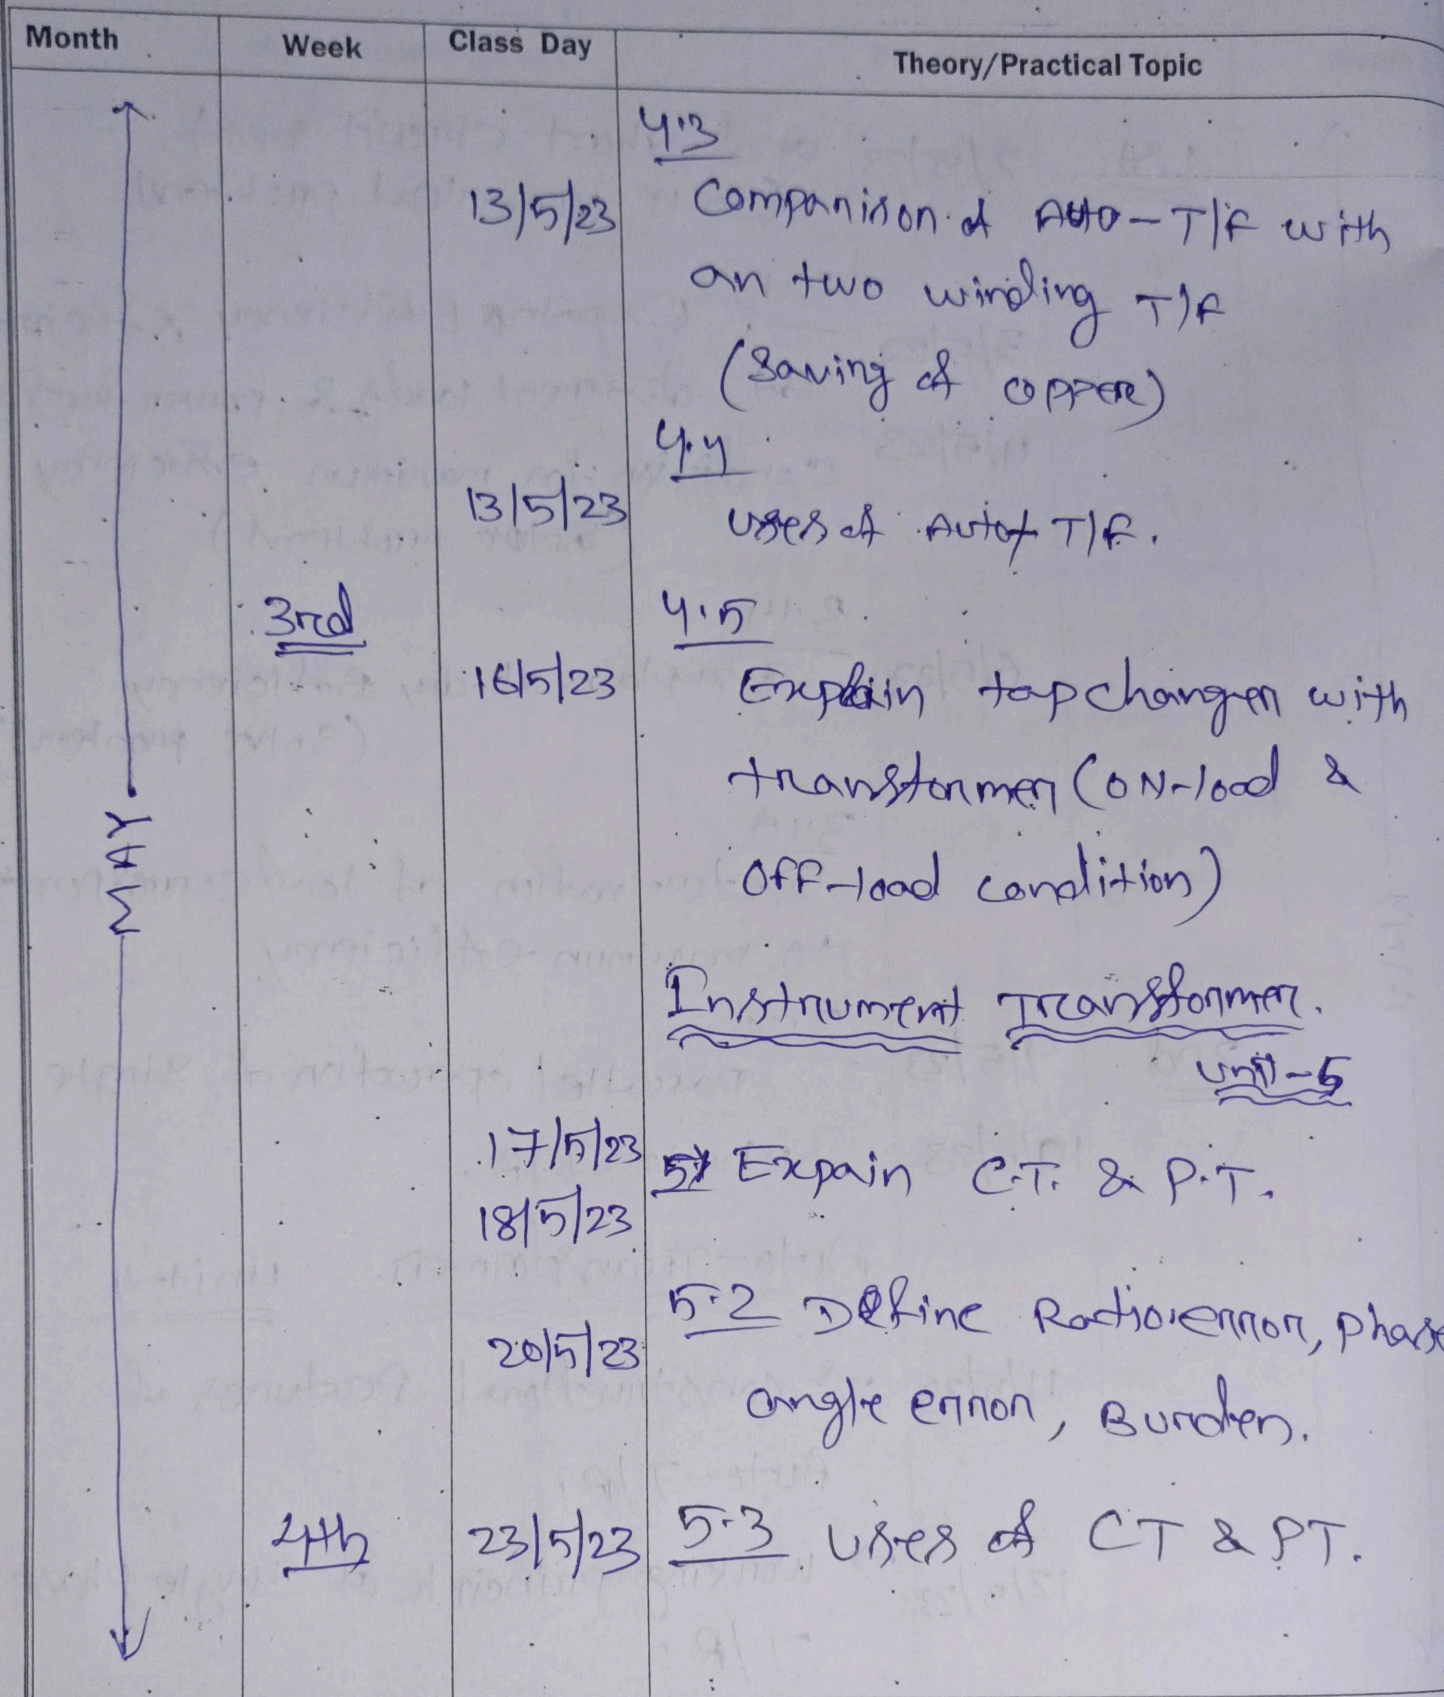 Month Week Class Day Theory/Practical Topic
4.3
13/5/23 Comparison of Auto-T/F with
an two winding T/F
(Saving of copper)
4.4
13/5/23 uses of Auto T/F.
3rd 4.5
16/5/23 Explain tap changer with
transformer (ON-load &
Off-load condition)
MAY
Instrument Transformer.
Unit-5
17/5/23 5.1 Expain C.T. & P.T.
18/5/23
5.2 Define Ratio error, Phase
20/5/23
angle error, Burden.
4th 23/5/23 5.3 Uses of CT & PT.